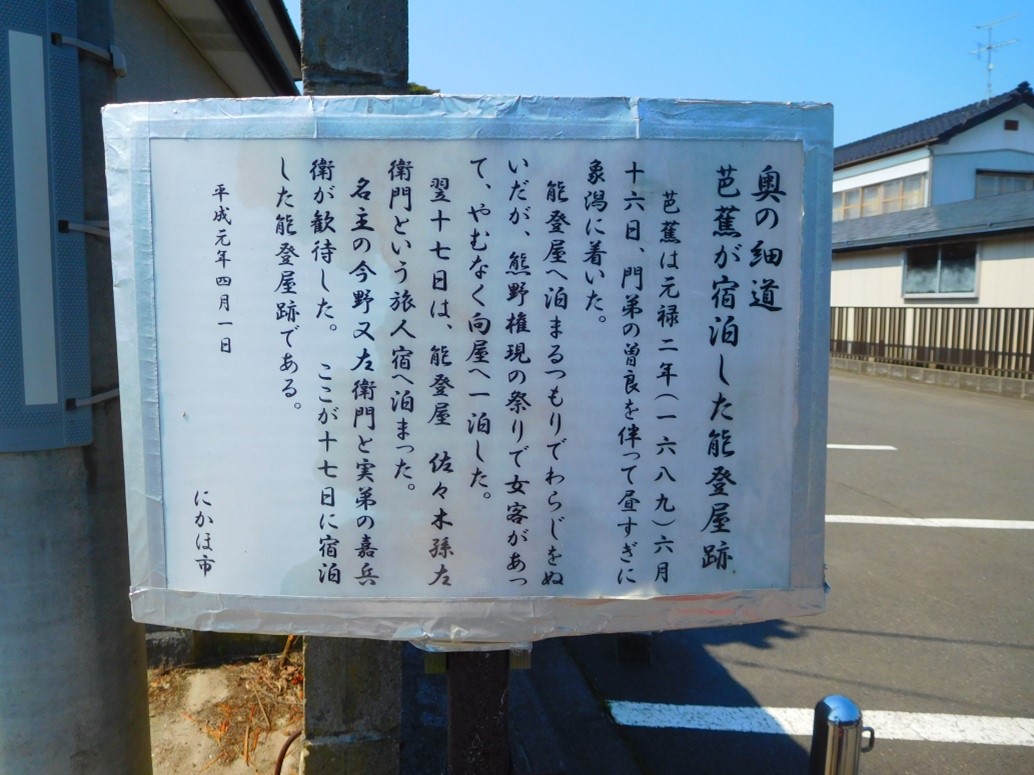 奥の細道
芭蕉が宿泊した能登屋跡
芭蕉は元禄二年（一六八九）六月
十六日、門弟の曽良を伴って昼すぎに
象潟に着いた。
能登屋へ泊まるつもりでわらじをぬ
いだが、熊野権現の祭りで女客があっ
て、やむなく向屋へ一泊した。
翌十七日は、能登屋　佐々木孫左
衛門という旅人宿へ泊まった。
名主の今野又左衛門と実弟の嘉兵
衛が歓待した。　ここが十七日に宿泊
した能登屋跡である。
平成元年四月一日
にかほ市